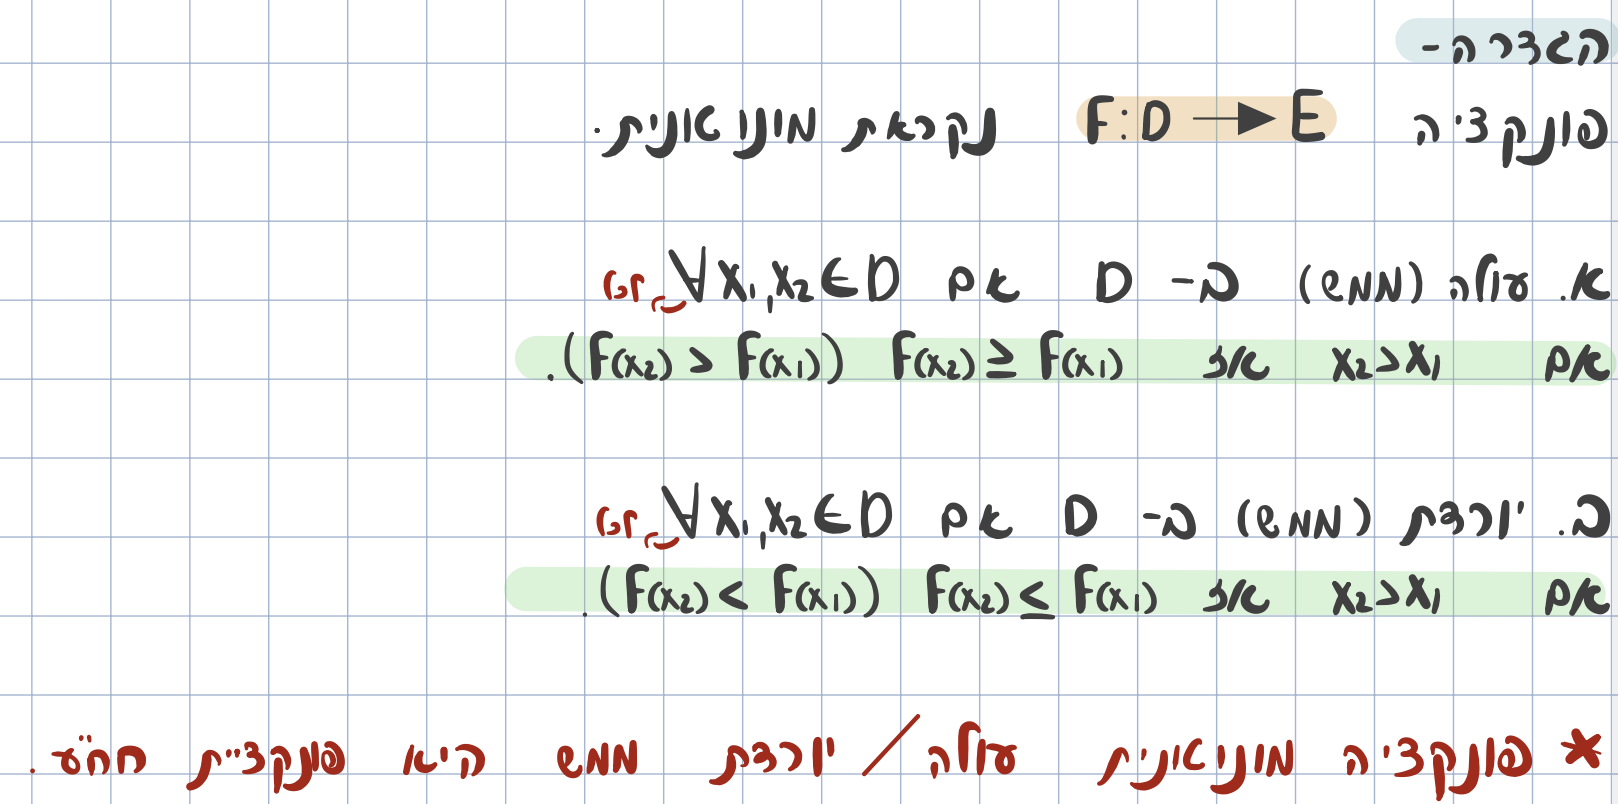 הגדרה-
פונקציה F:D → E נקראת מונוטונית.
א. עולה (ממש) ב- D אם ∀x₁,x₂∈D
אם x₂>x₁ אז F(x₂) ≥ F(x₁) (F(x₂) > F(x₁)).
ב. יורדת (ממש) ב- D אם ∀x₁,x₂∈D
אם x₂>x₁ אז F(x₂) ≤ F(x₁) (F(x₂) < F(x₁)).
* פונקציה מונוטונית עולה/יורדת ממש היא פונקציית חח"ע.